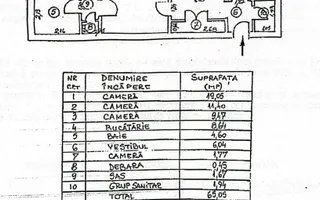 5
9
8
7
6
1
NR CRT DENUMIRE ÎNCĂPERE SUPRAFAȚA (MP)
1 CAMERĂ 19,05
2 CAMERĂ 11,40
3 CAMERĂ 9,47
4 BUCĂTĂRIE 8,64
5 BAIE 4,60
6 VESTIBUL
7 CAMERĂ 1,77
8 DEBARA 0,45
9 SAS 1,67
10 GRUP SANITAR 1,94
TOTAL 65,05